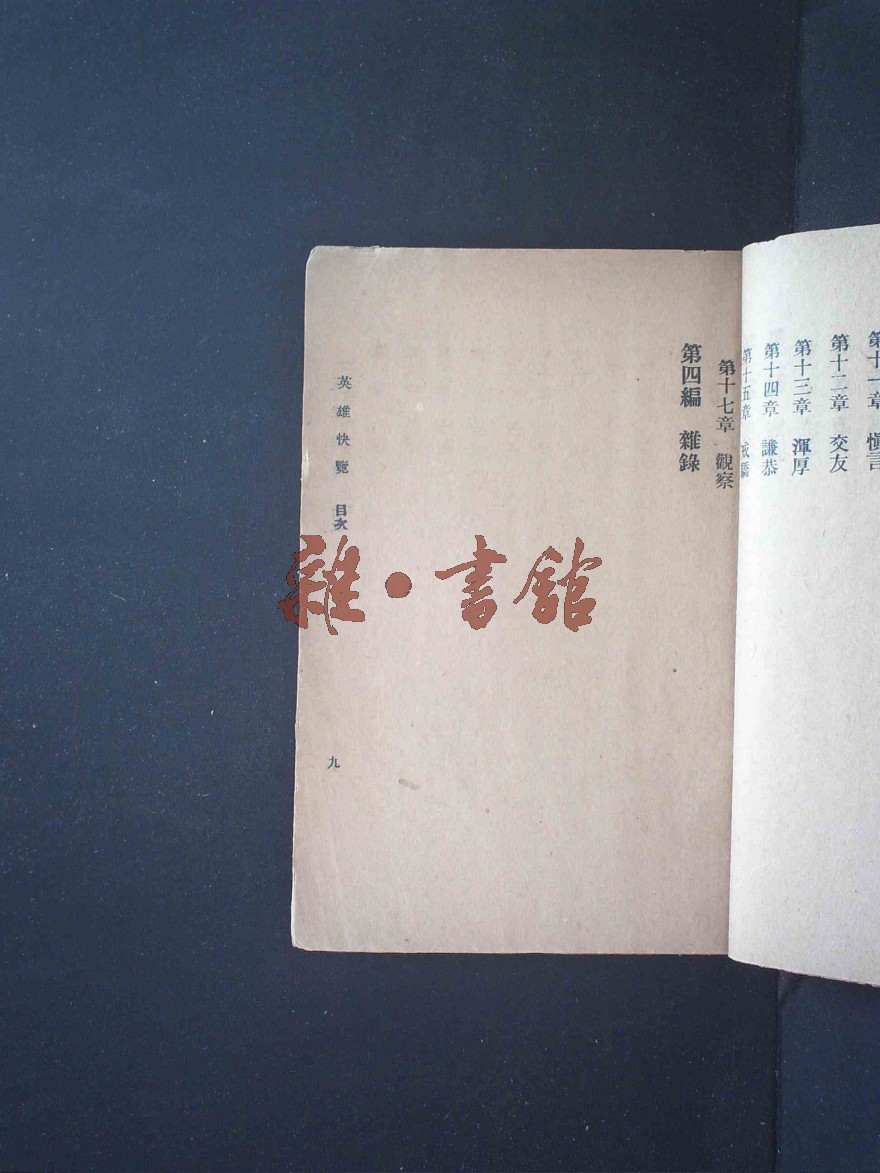 第十一章 慎言
第十二章 交友
第十三章 渾厚
第十四章 謙恭
第十五章 戒驕
第十七章 觀察
第四編 雜錄
英雄快覽 目次
九
雜·書館